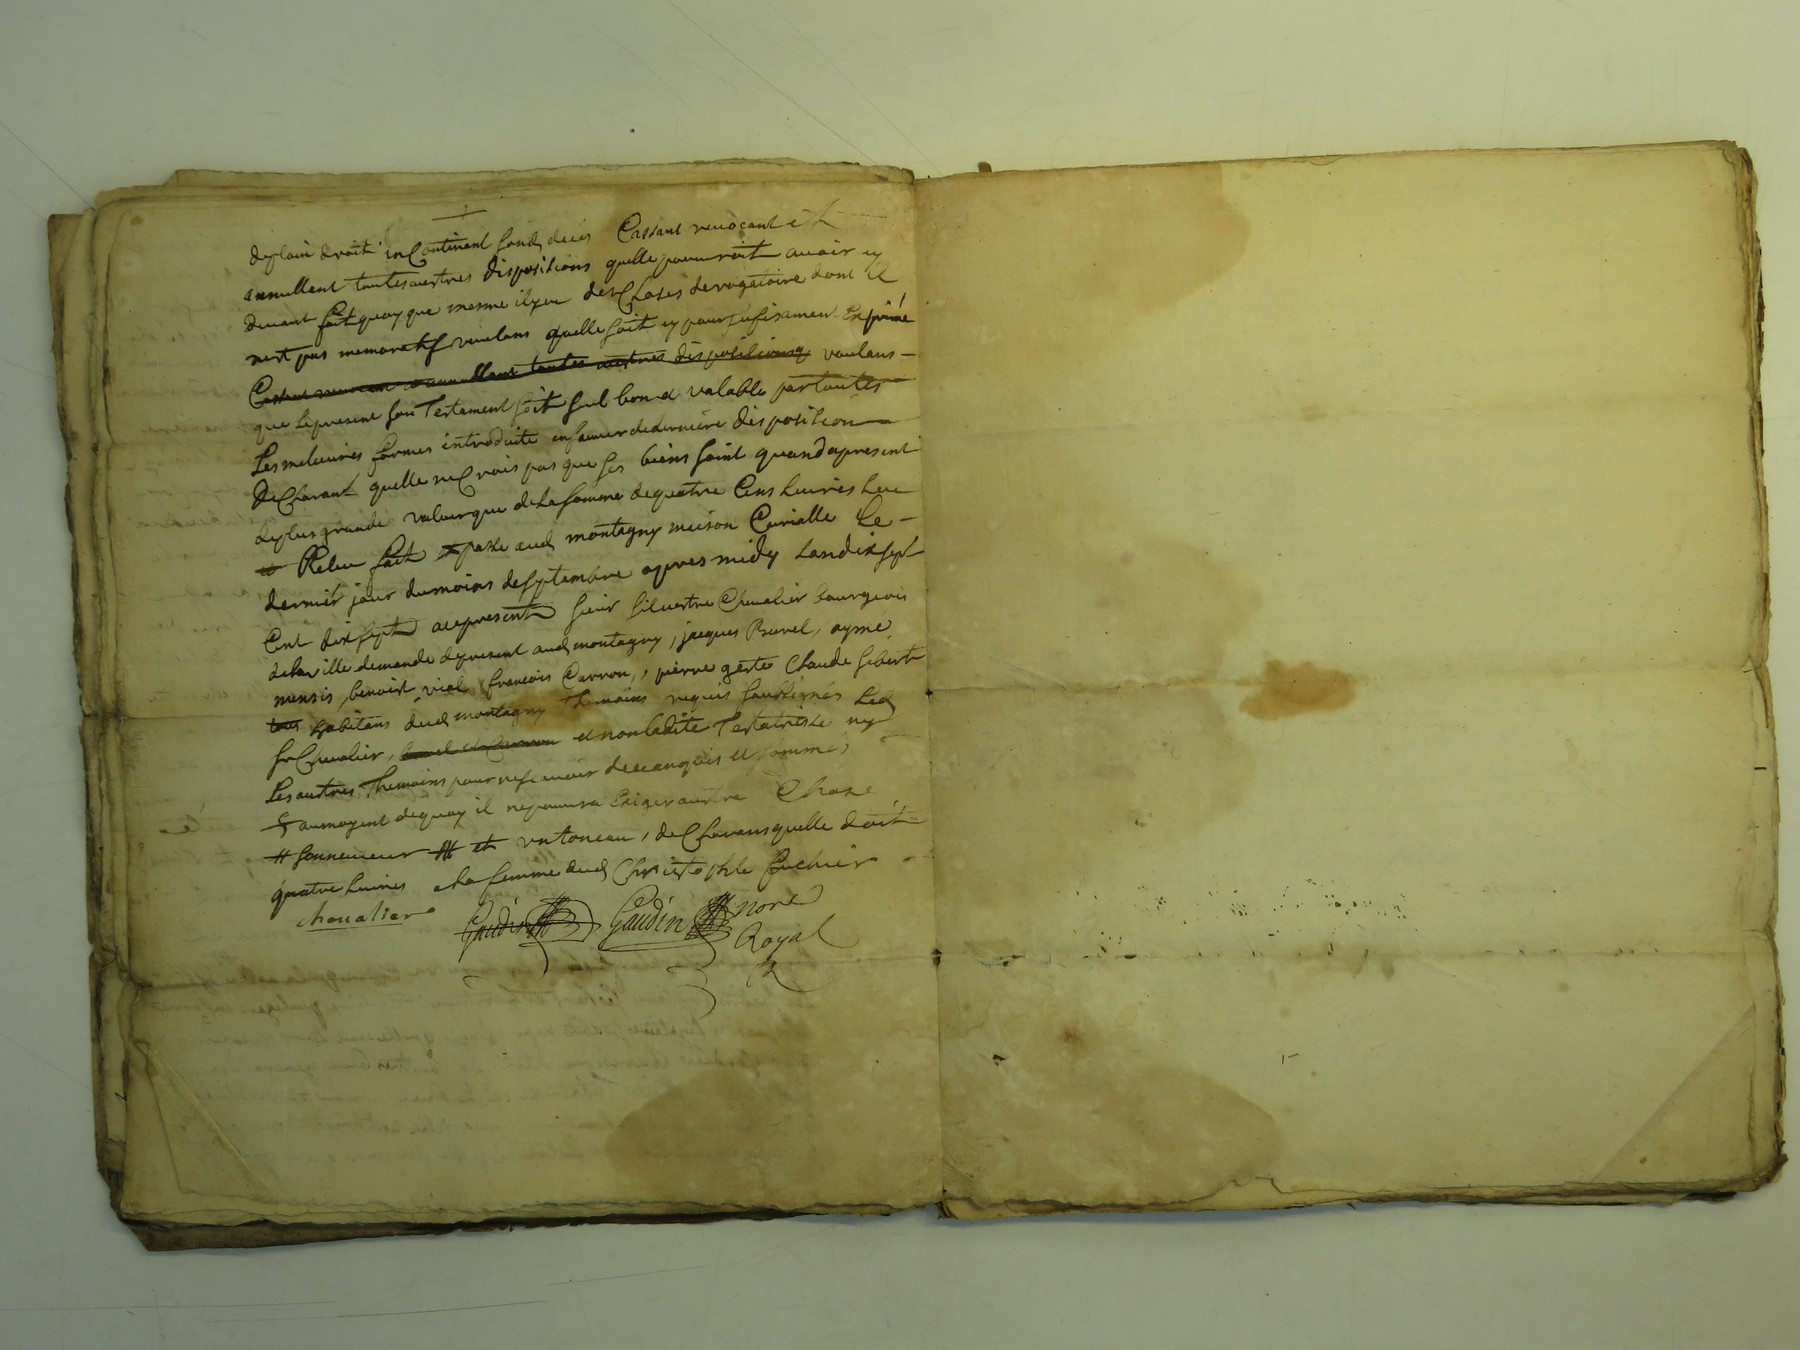 deplain droit incontinent son deces Cassant revocant et
annullent toutes autres dispositions quelle pourroit avoir cy
devant fait quoy que mesme il y eu des Choses derogatoire dont il
nest pas memoratif voulans quelle soit cy pour sufisament Exprimé
Cassant revocant et annullant toutes autres dispositions voulans
que le present son Testament soit seul bon et valable par toutes
Les melieures formes introduite en faveur de derniere disposition
declarant quelle ne Crois pas que ses biens soint quand a present
de plus grande valeur que de la somme de quatre Cens Livres Leu
et Releu fait et passe aud montagny maison Curialle Le
dernier jour du moins de septembre apres midy Lan dix sept
Cent dix sept au present sieur silvestre Chevalier bourgeois
de la ville de mande de present aud montagny, jacques Bruvel, ayme
mensis, benoist vial, francois Carron, pierre geste Claude gibert
tous habitans dud montagny Themoins requis soubsignés Led
sr Chevalier, et non ladite Testatrisse ny
Les autres Themoins pour ne scavoir de ce enquis et sommes
au moyent de quoy il ne pourra Exiger autre Chose
et un toneau, declarans quelle doit
quatre livres a la femme dud Christophle
chevalier Gaudin Gaudin nore
Royal
R